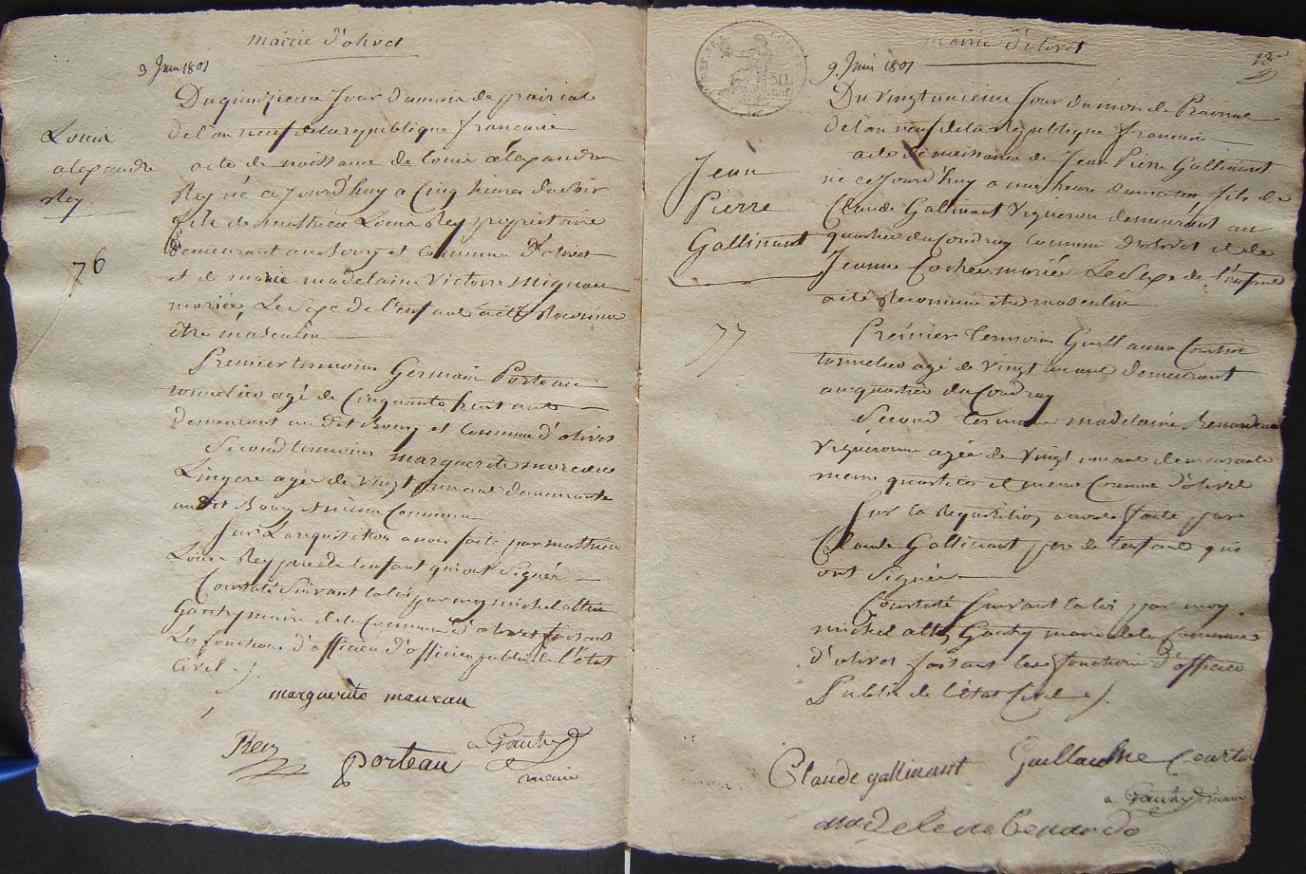 mairie d'olivet
3 Juin 1801
Louis
alexandre
Rey
76
Du quinzieme Jour du mois de prairial
de l'an neuf de la republique francaise
acte de naissance de louis alexandre
Rey né cejourd'huy a Cinq heures du soir
fils de mathieu Louis Rey proprietaire
demeurant au bourg et commune d'olivet
et de marie madelaine Victoire Mignau
mariés, Le Sexe de l'enfant a été Reconnu
être masculin
Premier temoin Germain Porteau
tonnelier agé de Cinquante huit ans
demeurant au dit Bourg et Commune d'olivet
Second temoin marguerite moreau
Lingere agée de vingt ans demeurante
audit Bourg et même Commune
Sur La requisition a nous faite par mathieu
Louis Rey pere de l'enfant qui ont Signé
Constaté Suivant la loi par moy michel
Gauthy maire de la Commune d'olivet faisant
Les fonctions d'officier d'officier public de l'état
Civil ./.
marguerite maureau
Rey
porteau
a Gauthy
maire
mairie d'olivet
9. Juin 1801
Jean
Pierre
Gallinant
77
Du vingtunieme Jour du mois de Prairial
de l'an neuf de la Republique francaise
acte de naissance de Jean Pierre Gallinant
né cejourd'huy a une heure du matin, fils de
Claude Gallinant Vigneron demeurant au
quartier du Coudray commune d'olivet et de
Jeanne Cocher mariés Le Sexe de l'enfant
a été Reconnu etre masculin
Premier temoin Guillaume Courtin
tonnelier agé de vingt ans demeurant
au quartier du Coudray
Second temoin madelaine Benardeau
Vigneronne agée de vingt ans demeurante
meme quartier et meme Commune d'olivet
Sur la Requisition a nous faite par
Claude Gallinant pere de l'enfant qui
ont Signés
Constaté suivant la loi par moy
michel Gauthy maire de la Commune
d'olivet faisant les fonctions d'officier
Public de l'état Civil ./.
Claude gallinant
Guillaume Courtin
a Gauthy maire